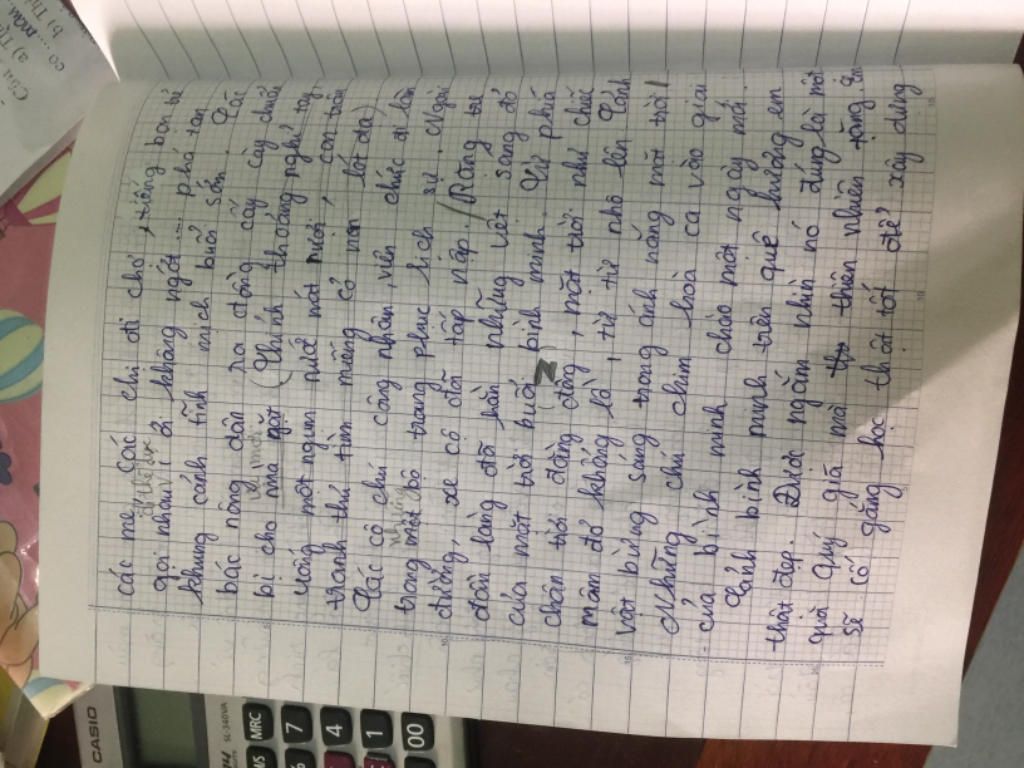 các mẹ, các chị đi chợ, tiếng bạn bè
gọi nhau í ới không ngớt... phá tan
khung cảnh tĩnh mịch buổi sớm. Các
bác nông dân ra đồng cấy cày chuẩn
bị cho (Thỉnh thoảng nghỉ tay,
uống một ngụm nước mát rười, con trâu
tranh thủ tìm miếng cỏ non lót dạ)
Các cô chú công nhân, viên chức đi làm
trong một bộ trang phục lịch sự. Ngoài
đường, xe cộ đã tấp nập. / Rặng tre
đầu làng đã hằn những vệt sáng đỏ
của mặt trời buổi bình minh. Từ phía
chân trời đằng đông, mặt trời như chiếc
mâm đỏ khổng lồ, từ từ nhô lên. Cảnh
vật bừng sáng trong ánh nắng mặt trời!
Những chú chim hoà ca vào giai
của bình minh chào một ngày mới.
Cảnh bình minh trên quê hương em
thật đẹp. Được ngắm nhìn nó đúng là một
quà quý giá mà thiên nhiên tặng. Em
sẽ cố gắng học thật tốt để xây dựng
CASIO
SL-340VA
MRC
7
4
1
00